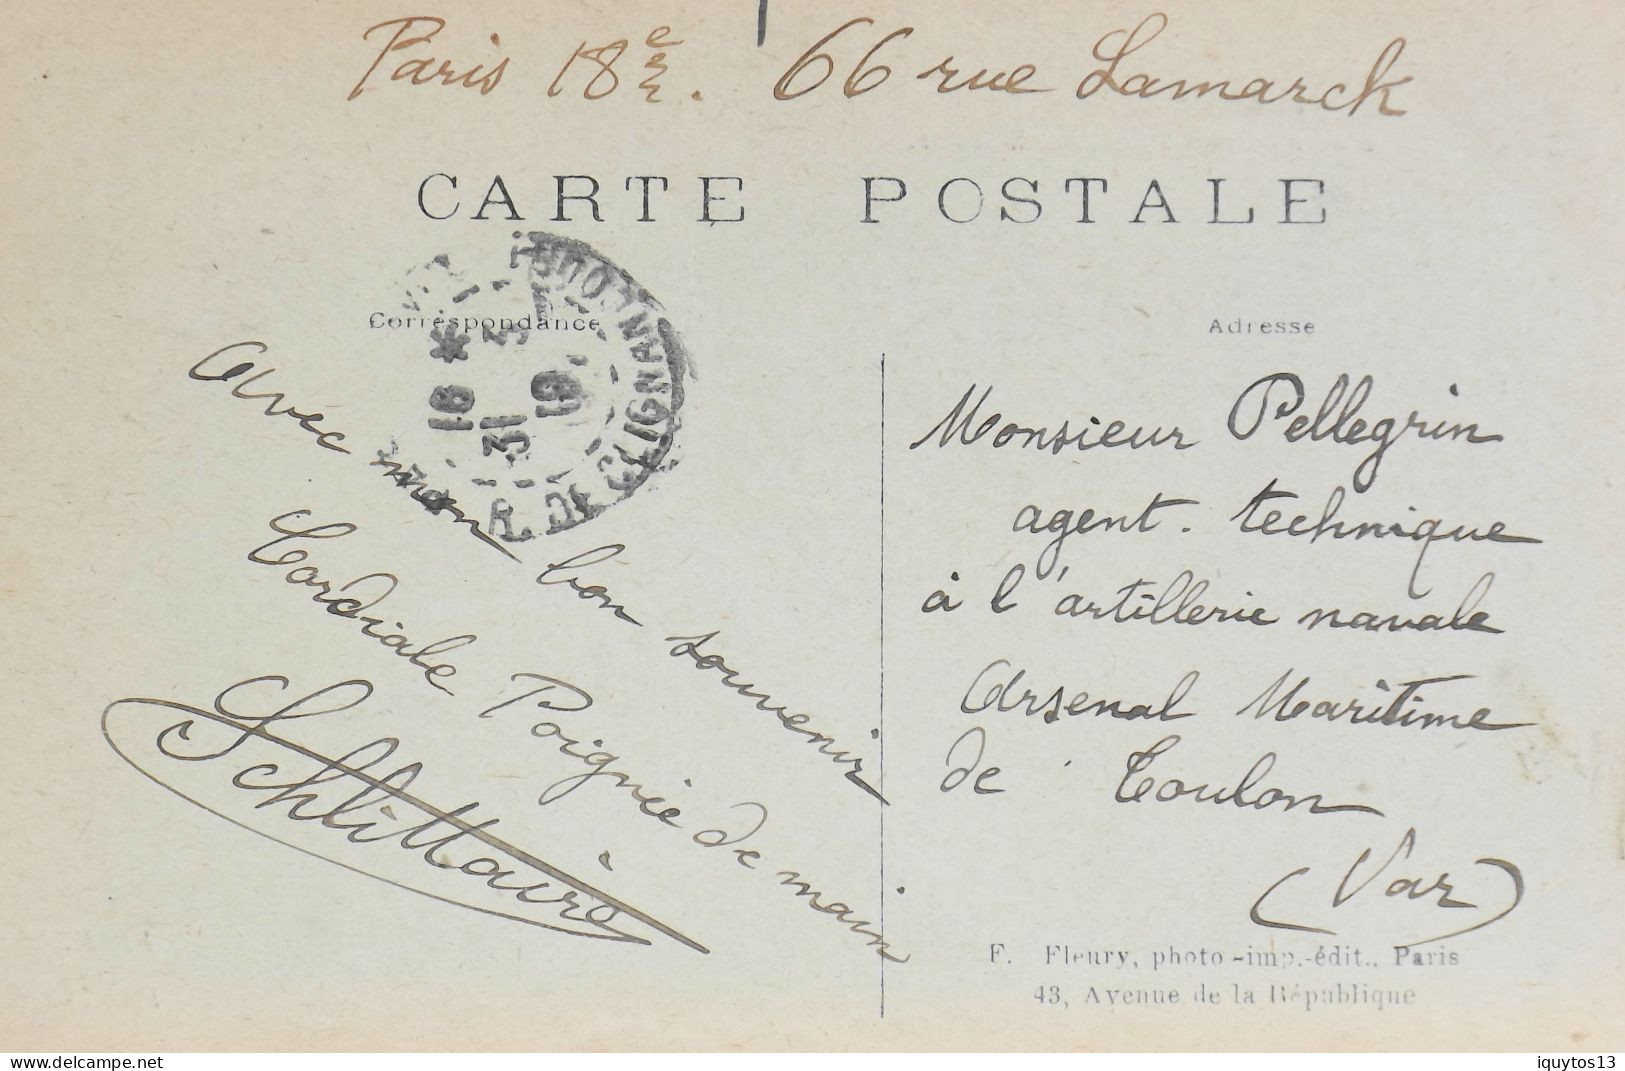 Paris 18e arr. 66 rue Lamarck
CARTE POSTALE
Correspondance
Adresse
R. DE CLIGNANCOURT
18 *
31
19
Avec mon bon souvenir
Cordiale Poignée de main
Schlittaire
Monsieur Pellegrin
agent. technique
à l'artillerie navale
Arsenal Maritime
de Toulon
(Var)
F. Fleury, photo-imp.-édit., Paris
43, Avenue de la République
delcampe.net
iquytos13